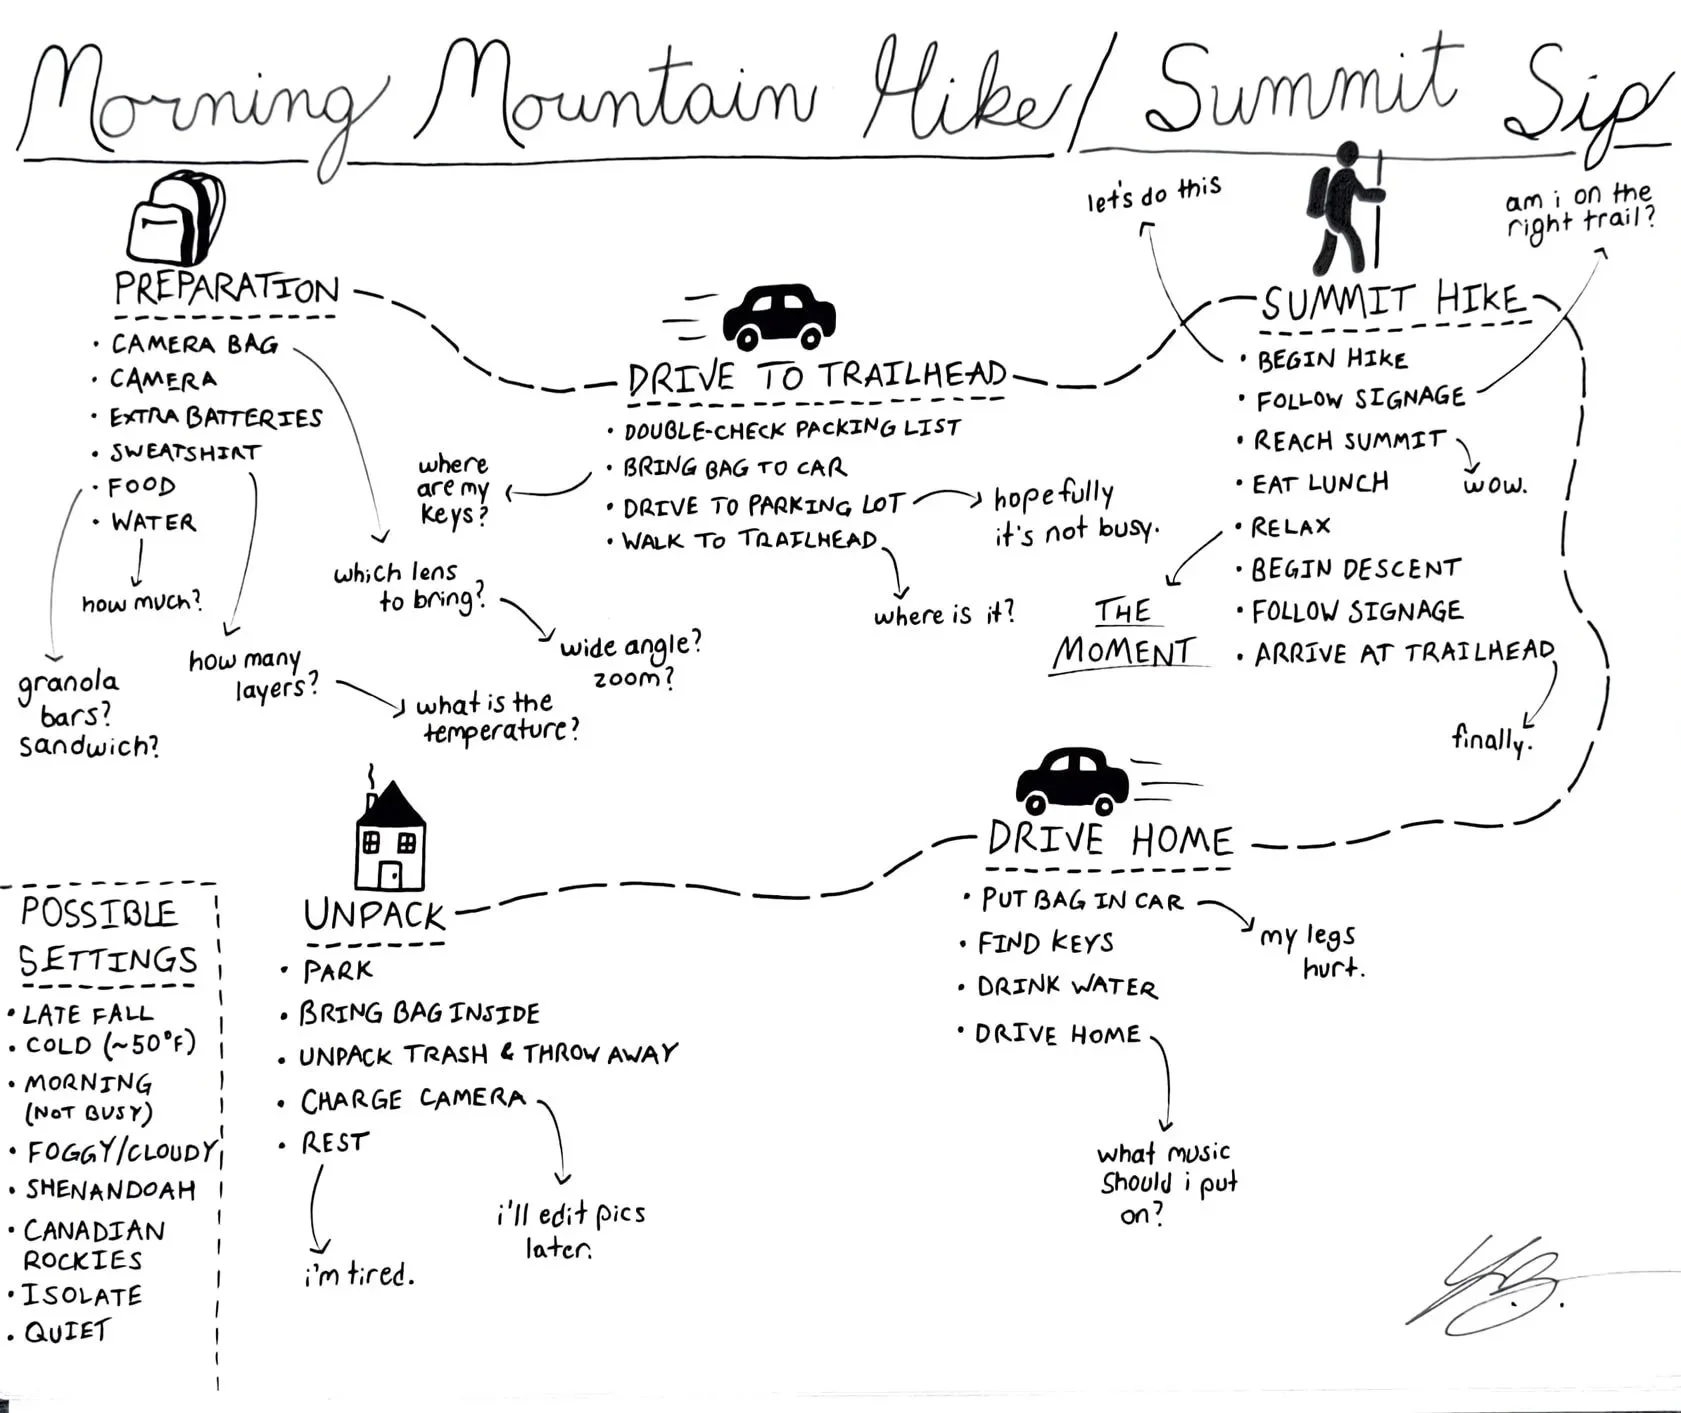 Morning Mountain Hike/Summit Sip
let's do this
am i on the
right trail?
PREPARATION
• CAMERA BAG
• CAMERA
• EXTRA BATTERIES
• SWEATSHIRT
• FOOD
• WATER
how much?
granola
bars?
sandwich?
how many
layers?
what is the
temperature?
which lens
to bring?
wide angle?
zoom?
DRIVE TO TRAILHEAD
• DOUBLE-CHECK PACKING LIST
• BRING BAG TO CAR
• DRIVE TO PARKING LOT
• WALK TO TRAILHEAD
where
are my
keys?
hopefully
it's not busy.
where is it?
SUMMIT HIKE
• BEGIN HIKE
• FOLLOW SIGNAGE
• REACH SUMMIT
• EAT LUNCH
• RELAX
• BEGIN DESCENT
• FOLLOW SIGNAGE
• ARRIVE AT TRAILHEAD
wow.
THE
MOMENT
finally.
DRIVE HOME
• PUT BAG IN CAR
• FIND KEYS
• DRINK WATER
• DRIVE HOME
my legs
hurt.
what music
should i put
on?
UNPACK
• PARK
• BRING BAG INSIDE
• UNPACK TRASH & THROW AWAY
• CHARGE CAMERA
• REST
i'll edit pics
later.
i'm tired.
POSSIBLE
SETTINGS
• LATE FALL
• COLD (~50°F)
• MORNING
(NOT BUSY)
• FOGGY/CLOUDY
• SHENANDOAH
• CANADIAN
ROCKIES
• ISOLATE
• QUIET